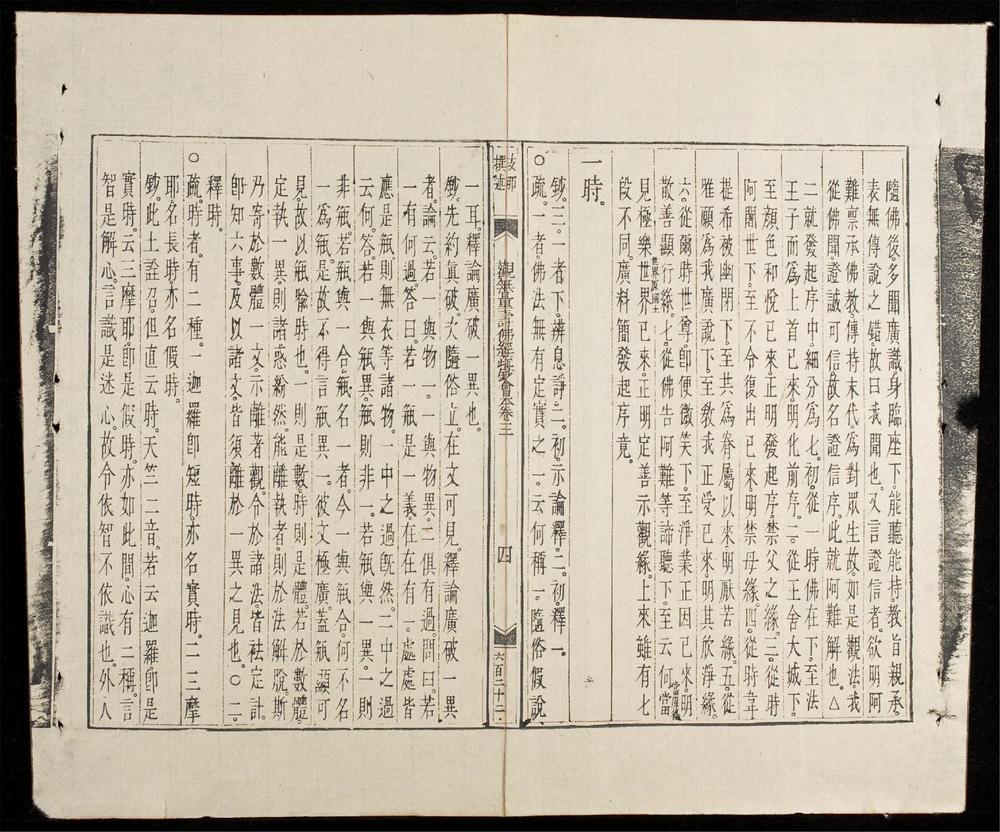 隨佛後。多聞廣識身臨座下。能聽能持。教旨親承。
表無傳說之錯。故曰我聞也。又言證信者。欲明阿
難稟承佛教。傳持末代。為對眾生故。如是觀法我
從佛聞證誠可信。故名證信序。此就阿難解也。△
二就發起序中。細分為七。初。從一時佛在下。至法
王子而為上首已來。明化前序。二。從王舍大城下。
至顏色和悅已來。正明發起序。禁父之緣。三。從時
阿闍世下。至不令復出已來。明禁母緣。四。從時韋
提希被幽閉下。至共為眷屬以來。明厭苦緣。五。從
唯願為我廣說下。至教我正受已來。明其欣淨緣。
六。從爾時世尊。即便微笑下。至淨業正因已來。明
散善顯行緣。七。從佛告阿難等諦聽下。至云何當
見極樂世界已來。正明定善示觀緣。上來雖有七
段不同。廣料簡發起序竟。
一時。
鈔。三。一者下。辨息諍。二。初。示論釋。二。初。釋一。
○疏。一者。佛法無有定實之一。云何稱一。隨俗假說
支那撰述
觀無量壽佛經疏鈔會本卷三
四
六百二十二
一耳。釋論廣破一異也。
鈔。先約真破。次隨俗立。在文可見。釋論廣破一異
者。論云。若一與物一。一與物異。二俱有過。問曰。若
一有何過。答曰。若一瓶是一義。在在有一。處處皆
應是瓶。則無衣等諸物。一中之過既然。二中之過
云何。答。若一與瓶異。瓶則非一。若瓶與一異。一則
非瓶。若瓶與一合。瓶名一者。今一與瓶合。何不名
一為瓶。是故不得言瓶異一。彼文極廣。蓋瓶顯可
見。故以瓶喻時也。一則是數。時則是體。若於數體
定執一異。則諸惑紛然。能離執者。則於法解脫。斯
乃寄於數體一文。示離著觀。令於諸法。皆袪定計。
即知六事。及以諸文。皆須離於一異之見也。○二。
釋時。
○疏。時者。有二種。一迦羅。即短時。亦名實時。二三摩
耶。名長時。亦名假時。
鈔。此土詮召。但直云時。天竺二音。若云迦羅即是
實時。云三摩耶。即是假時。亦如此間。心有二稱。言
智是解心。言識是迷心。故令依智不依識也。外人